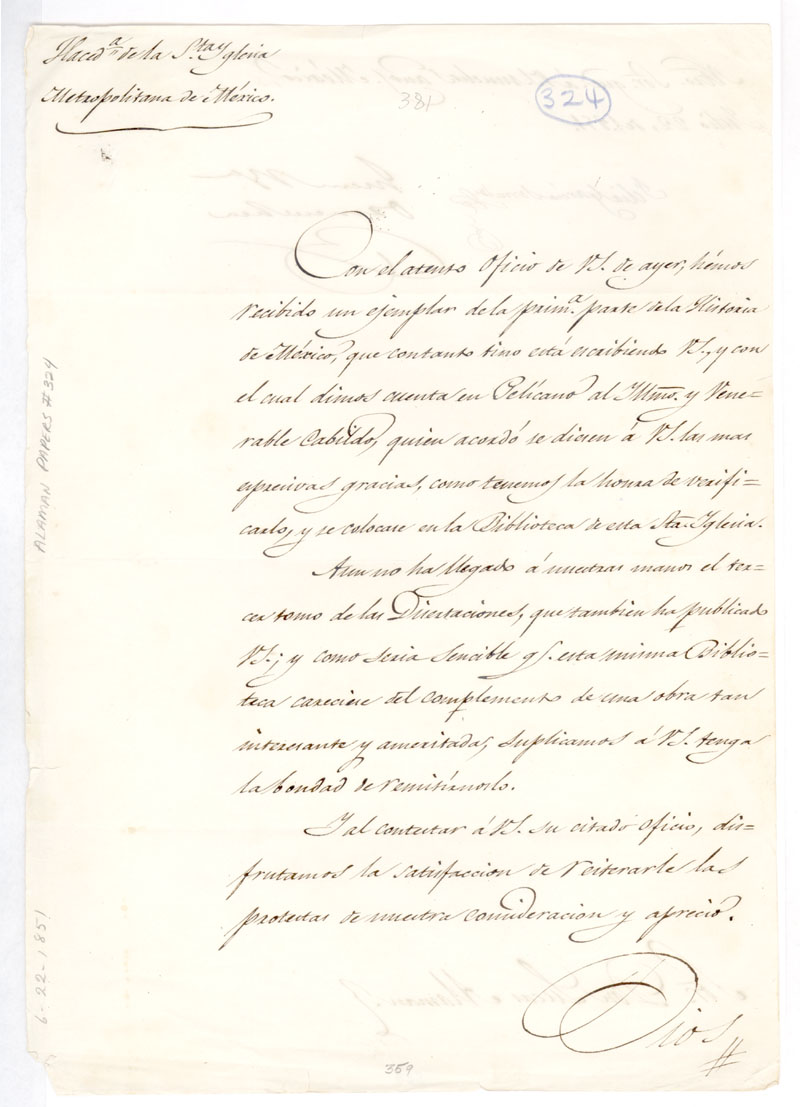 Haced.ª de la S.ta Yglesia
Metropolitana de México.
381
324
Con el atento Oficio de VS. de ayer, hémos
recibido un ejemplar de la prim.ª parte de la Historia
de México, que con tanto tino está escribiendo VS., y con
el cual dimos cuenta en Pelícano al Illmo. y Vene=
rable Cabildo, quien acordó se diesen á VS. las mas
espresivas gracias, como tenemos la honra de verifi=
carlo, y se colocase en la Biblioteca de esta Sta. Iglesia.
Aun no ha llegado á nuestras manos el ter=
cer tomo de las Disertaciones, que tambien ha publicado
VS.; y como seria sencible q. esta misma Biblio=
teca careciese del complemento de una obra tan
interesante y ameritada, suplicamos á VS. tenga
la bondad de remitírnoslo.
Y al contestar á VS. su citado Oficio, dis=
frutamos la satisfaccion de reiterarle las
protestas de nuestra consideracion y aprecio.
Dios
359
ALAMAN PAPERS #324
6-22-1851